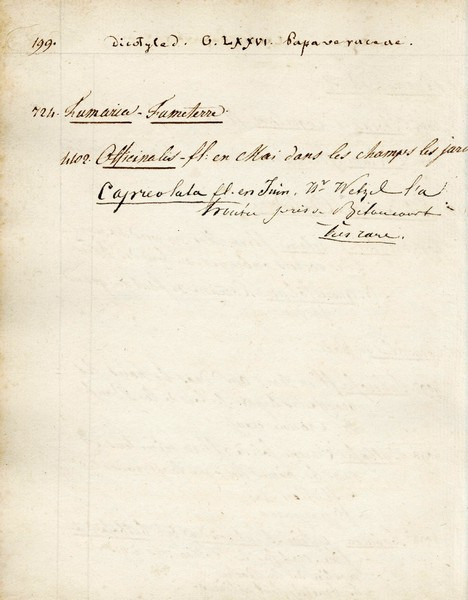 199. dicotyled. G. LXXVI. Papaveraceae.
724. Fumaria - Fumeterre.
4102. Officinalis - fl. en Mai dans les champs les jard
Capreolata fl. en Juin. Mr Wetzel l'a
trouvée près de Béthoncourt
très rare.